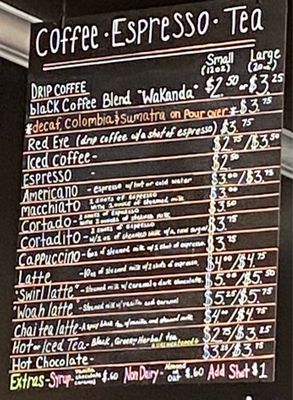 Coffee · Espresso · Tea
Small Large
(12oz) (20oz)
DRIP COFFEE
black Coffee Blend "Wakanda" $2.50 or $3.25
*decaf, colombia & sumatra on Pour over* $3.75
Red Eye (drip coffee w/a shot of espresso) $3.75
Iced Coffee - $2.75/$3.50
Espresso - $2.50
Americano - espresso w/hot or cold water $3.00/$3.75
Macchiato - 2 shots of espresso with 1 ounce of steamed milk $3.00
Cortado - 2 shots of espresso with 2 ounces of steamed milk $3.50
Cortadito - 2 shots of espresso w/2 oz of steamed milk w/a raw sugar $3.75
Cappuccino - 6oz of steamed milk w/2 shot of espresso $3.75
Latte - 10oz of steamed milk w/2 shots of espresso $4.00/$4.75
"Swirl latte" - Steamed milk w/ caramel & dark chocolate $5.00/$5.50
"Woah latte" - Steamed milk w/vanilla and caramel $5.25/$5.75
Chai tea latte - A spicy black tea w/vanilla and steamed milk $4.00/$4.75
Hot or iced Tea - Black, Green, Herbal tea $2.75/$3.25
Hot Chocolate - $3.25/$3.75
Extras - Syrup - vanilla chocolate caramel $.60 Non Dairy - Almond oat $.60 Add Shot $1